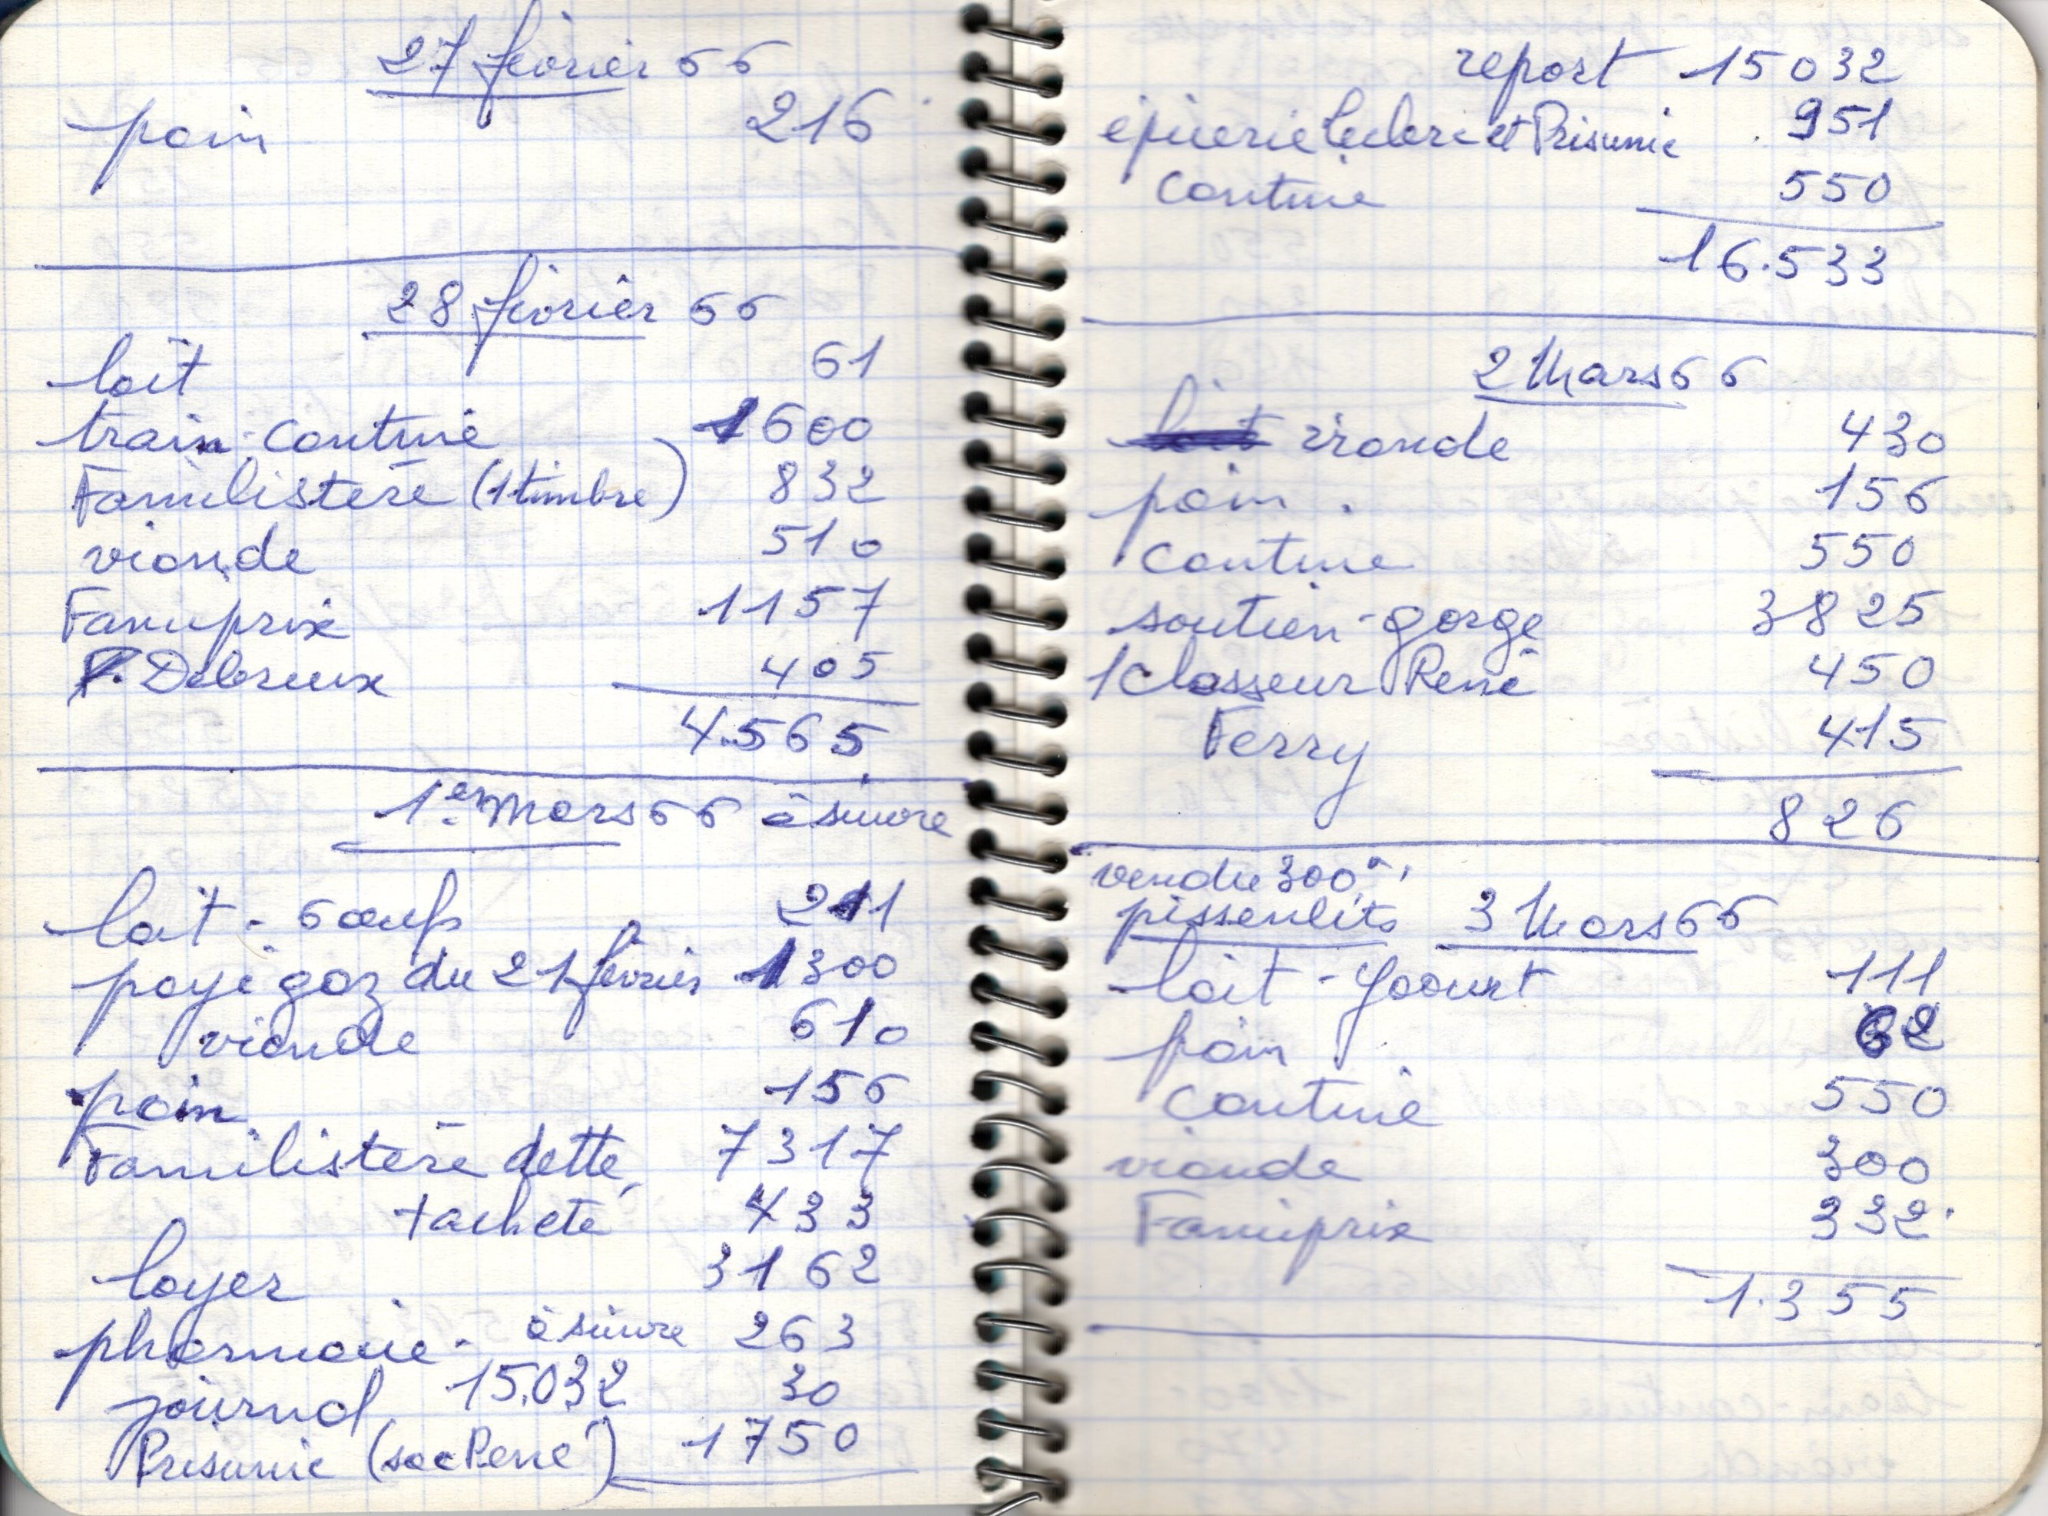 27 février 66
pain 216
28 février 66
lait 61
train-cantine 1600
Familistère (1 timbre) 832
viande 510
Famiprix 1157
Debrieux 405
4.565
1er Mars 66 à suivre
lait - 6 œufs 211
payé gaz du 21 février 1300
viande 610
pain 156
Familistère dette, 7317
+ acheté 433
loyer 3162
pharmacie - à suivre 263
journal 15.032 30
Prisunic (sac René) 1750
report 15032
épicerie Leclerc et Prisunic 951
cantine 550
16.533
2 Mars 66
viande 430
pain. 156
cantine 550
soutien-gorge 3825
1 classeur René 450
Ferry 415
826
vendu 300
pissenlits 3 Mars 66
lait - Yaourt 111
pain 62
cantine 550
viande 300
Famiprix 332.
1.355